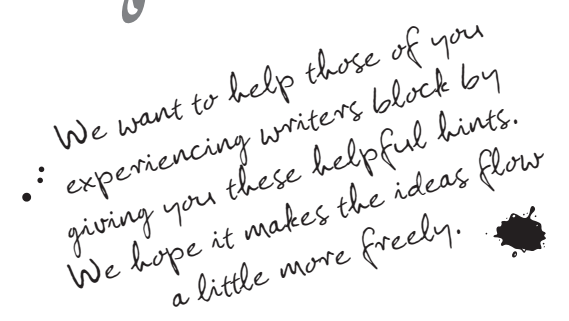 We want to help those of you
experiencing writers block by
giving you these helpful hints.
We hope it makes the ideas flow
a little more freely.